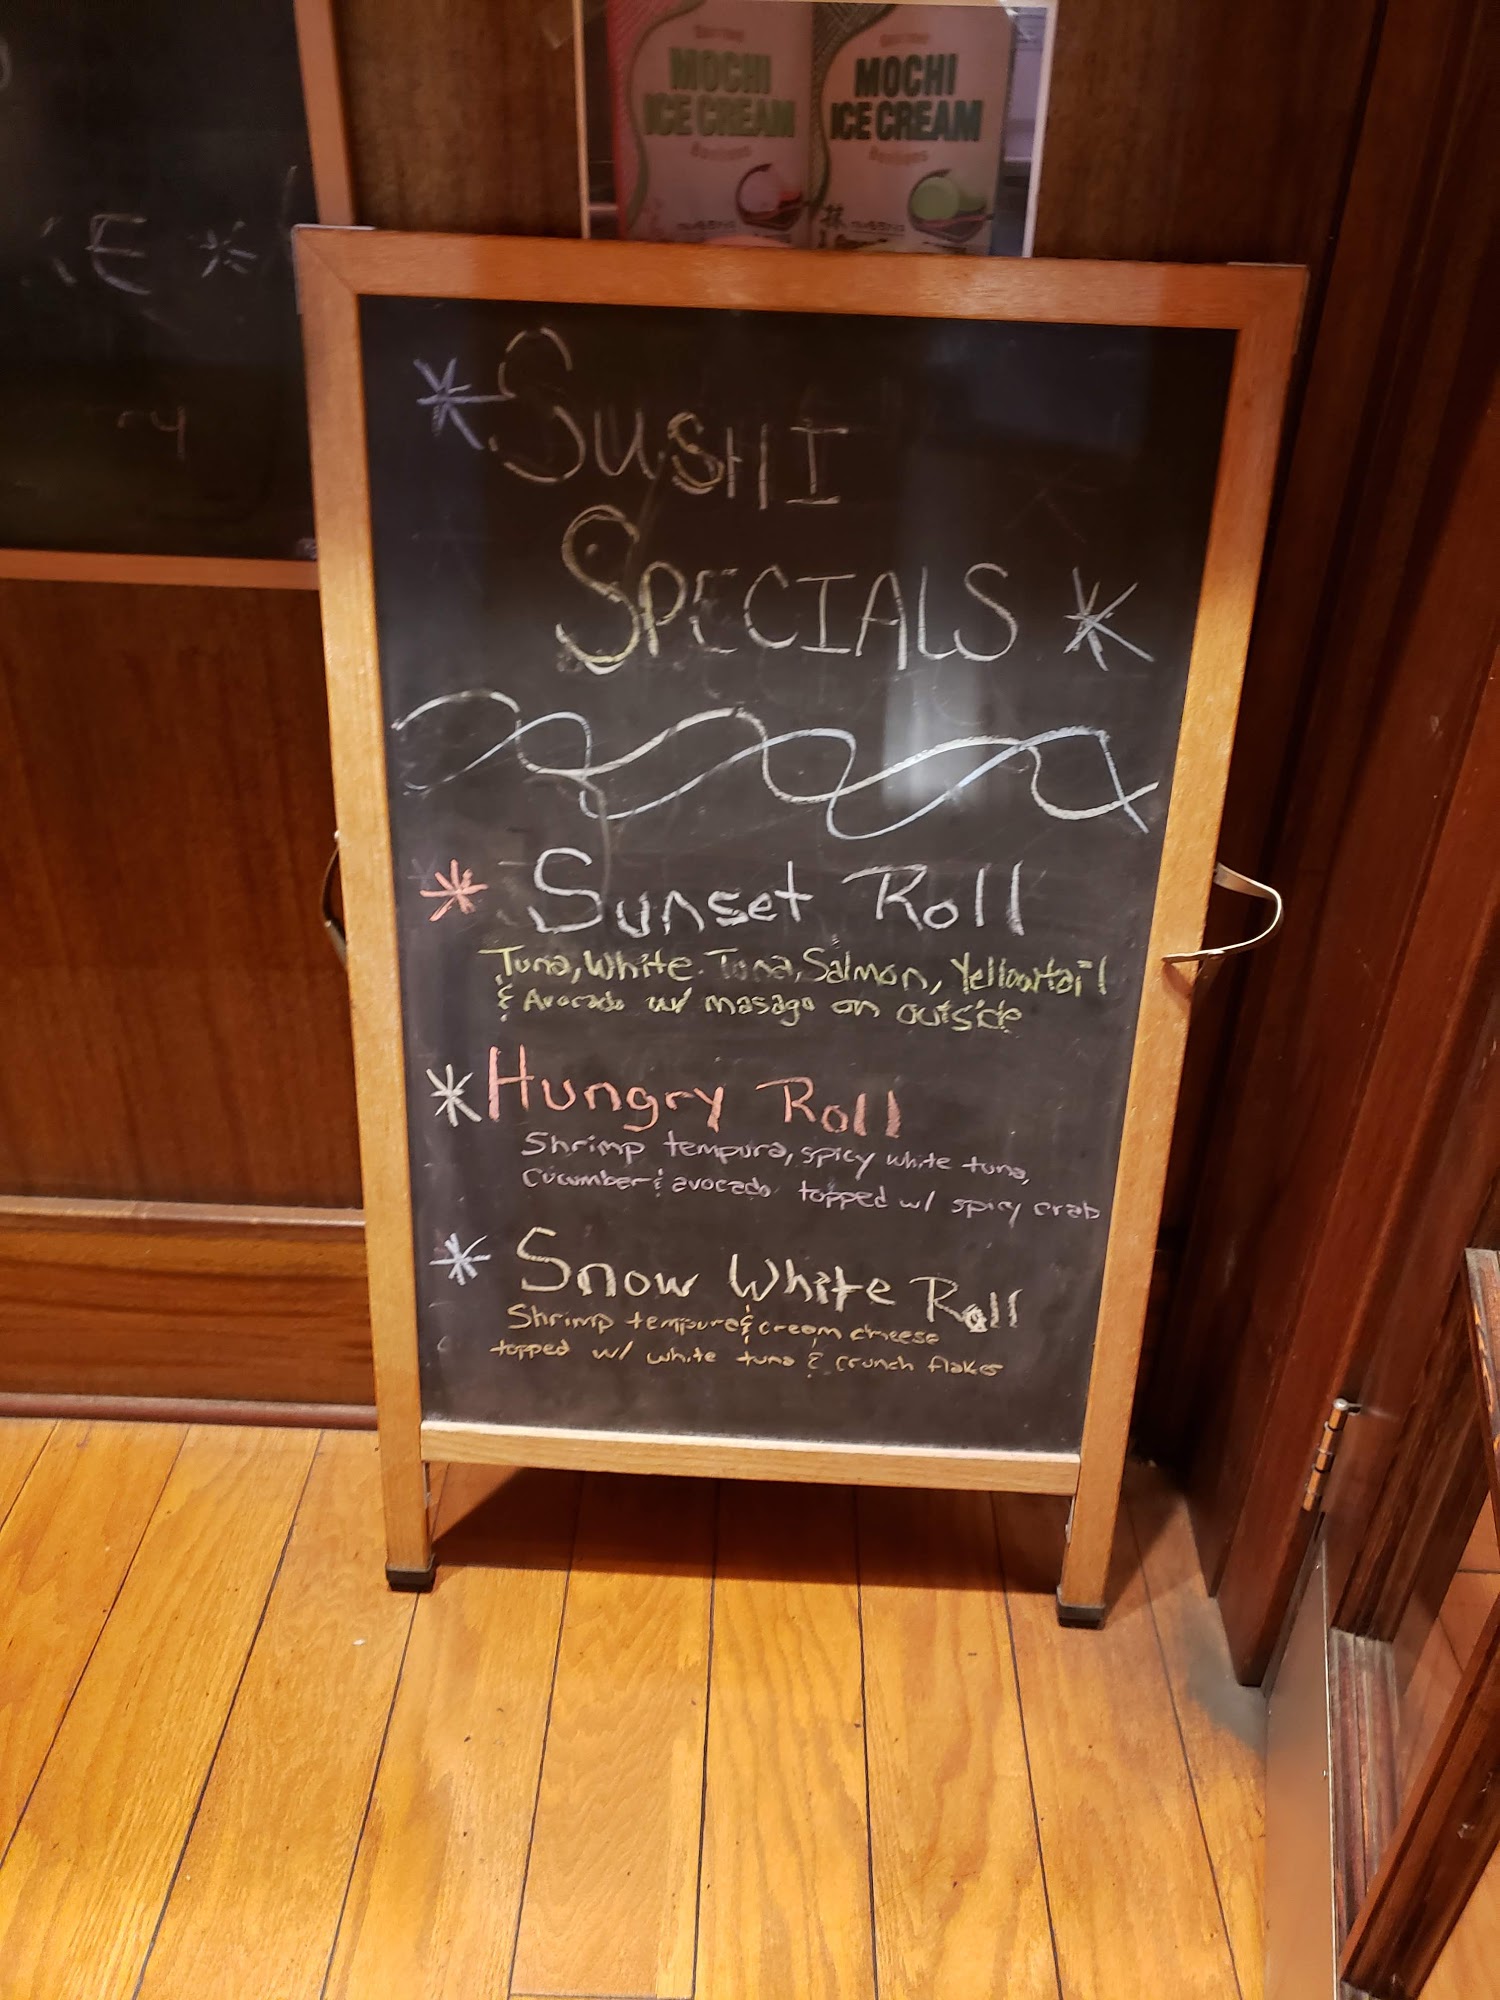 MOCHI
ICE CREAM
MOCHI
ICE CREAM
SUSHI
SPECIALS
Sunset Roll
Tuna, White Tuna, Salmon, Yellowtail
& Avocado w/ masago on outside
Hungry Roll
Shrimp tempura, spicy white tuna,
cucumber & avocado topped w/ spicy crab
Snow White Roll
Shrimp tempura & cream cheese
topped w/ white tuna & crunch flakes